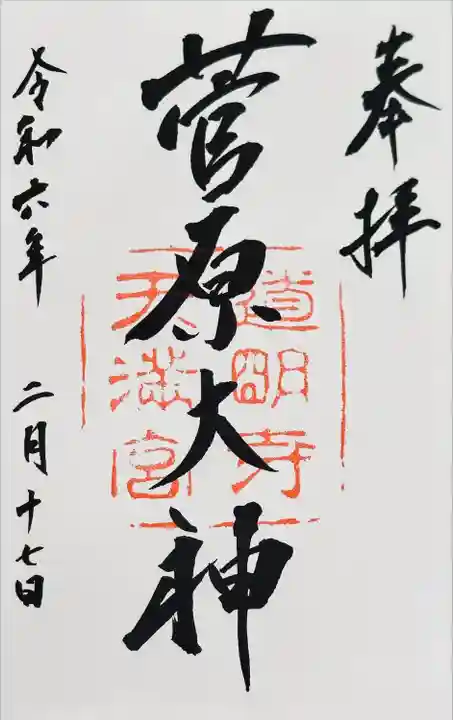 奉拝
菅原大神
道明寺
天満宮
令和六年 二月十七日